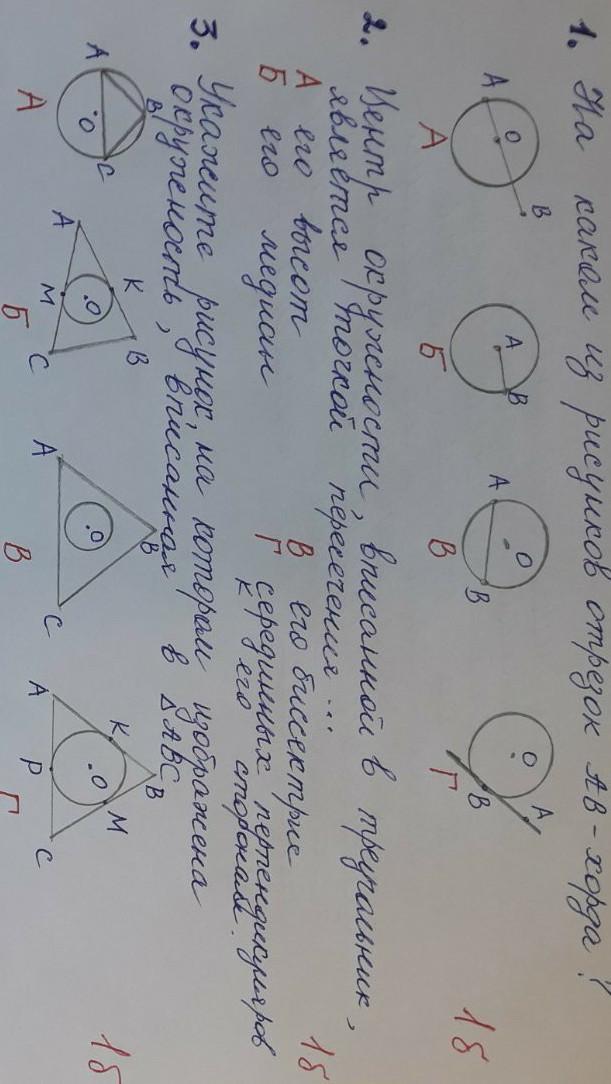 1. На каком из рисунков отрезок АВ - хорда?
А О В
А
А В
Б
А О В
В
О А В
Г
1б
2. Центр окружности, вписанной в треугольник,
является точкой пересечения ...
А его высот
Б его медиан
В его биссектрис
Г серединных перпендикуляров
к его сторонам.
1б
3. Укажите рисунок, на котором изображена
окружность, вписанная в ΔАВС
А В С О
А
А К В М С О
Б
А В С О
В
А К В М Р С О
Г
1б